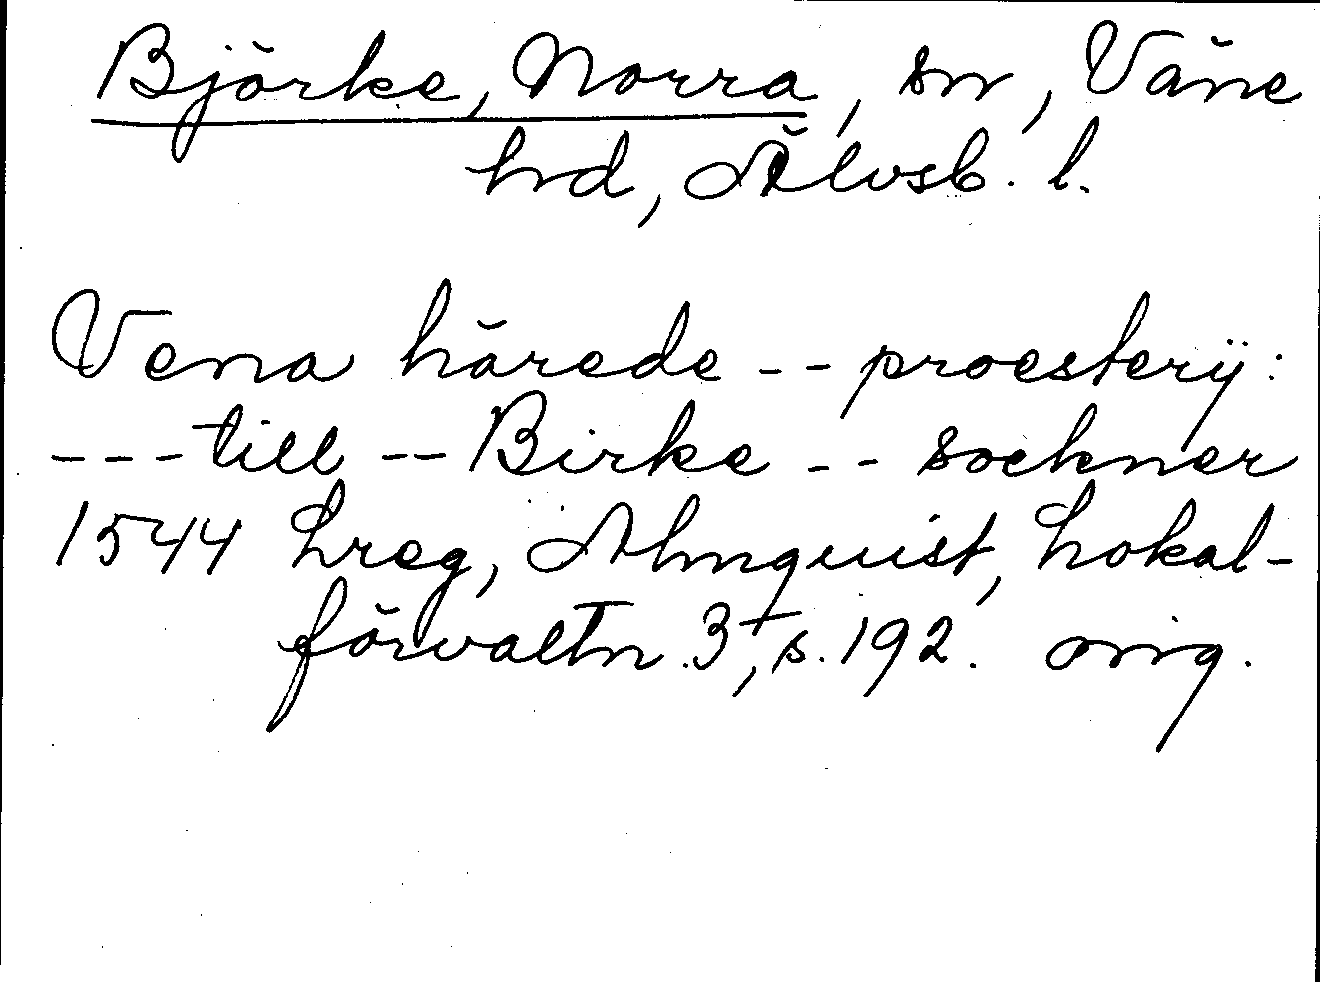 Björke, Norra, sn, Väne
hd, Älvsb. l.
Vena härede -- proesterij:
--- till -- Birke -- sockner
1544 Lreg, Almquist, Lokal-
förvaltn. 3, s. 192. orig.